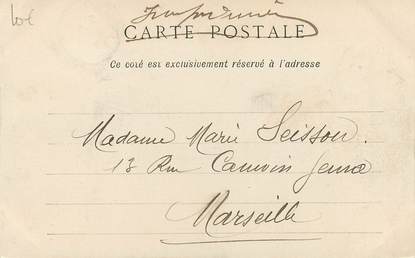 Imprimé
CARTE POSTALE
Ce coté est exclusivement réservé à l'adresse
Madame Marie Seisson.
13 Rue Cauvin Jeune
Marseille